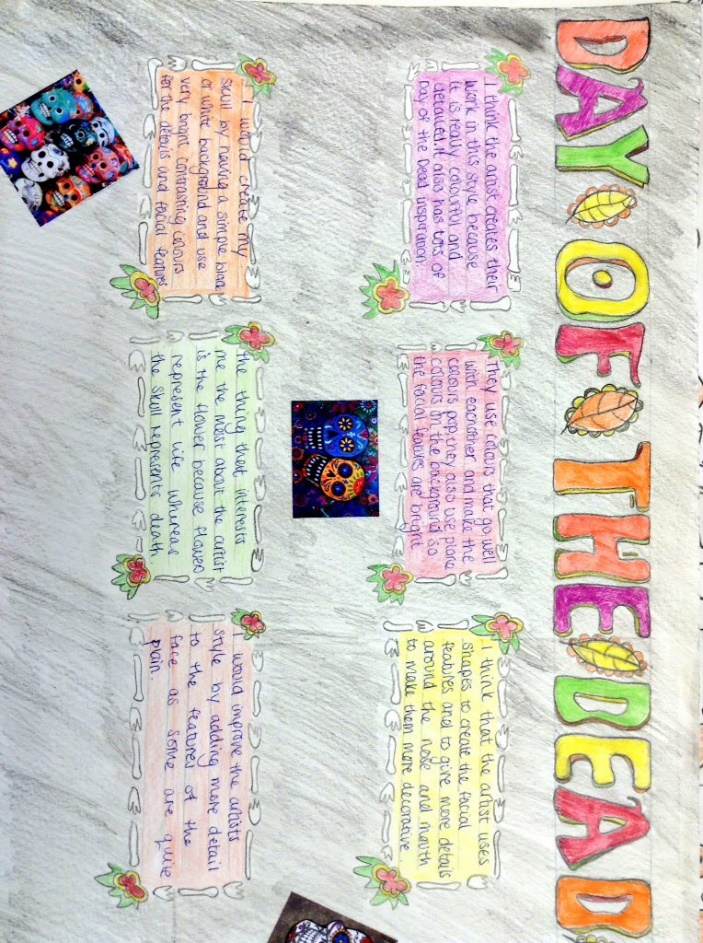 DAY OF THE DEAD
I think the artist creates their
work in this style because
it is really colourful and
detailed. It also has lots of
Day of the Dead inspiration
They use colours that go well
with eachother and make the
colours pop, they also use plane
colours in the background so
the facial features are bright
I think that the artist uses
shapes to create the facial
features and to give more details
around the nose and mouth
to make them more decorative
I would create my
skull by having a simple plan
or white background and use
very bright contrasting colours
for the details and facial features
the thing that interests
me the most about the artist
is the flower because flower
represent life whereas
the skull represents death
I would improve the artists
style by adding more detail
to the features of the
face as some are quite
plain.